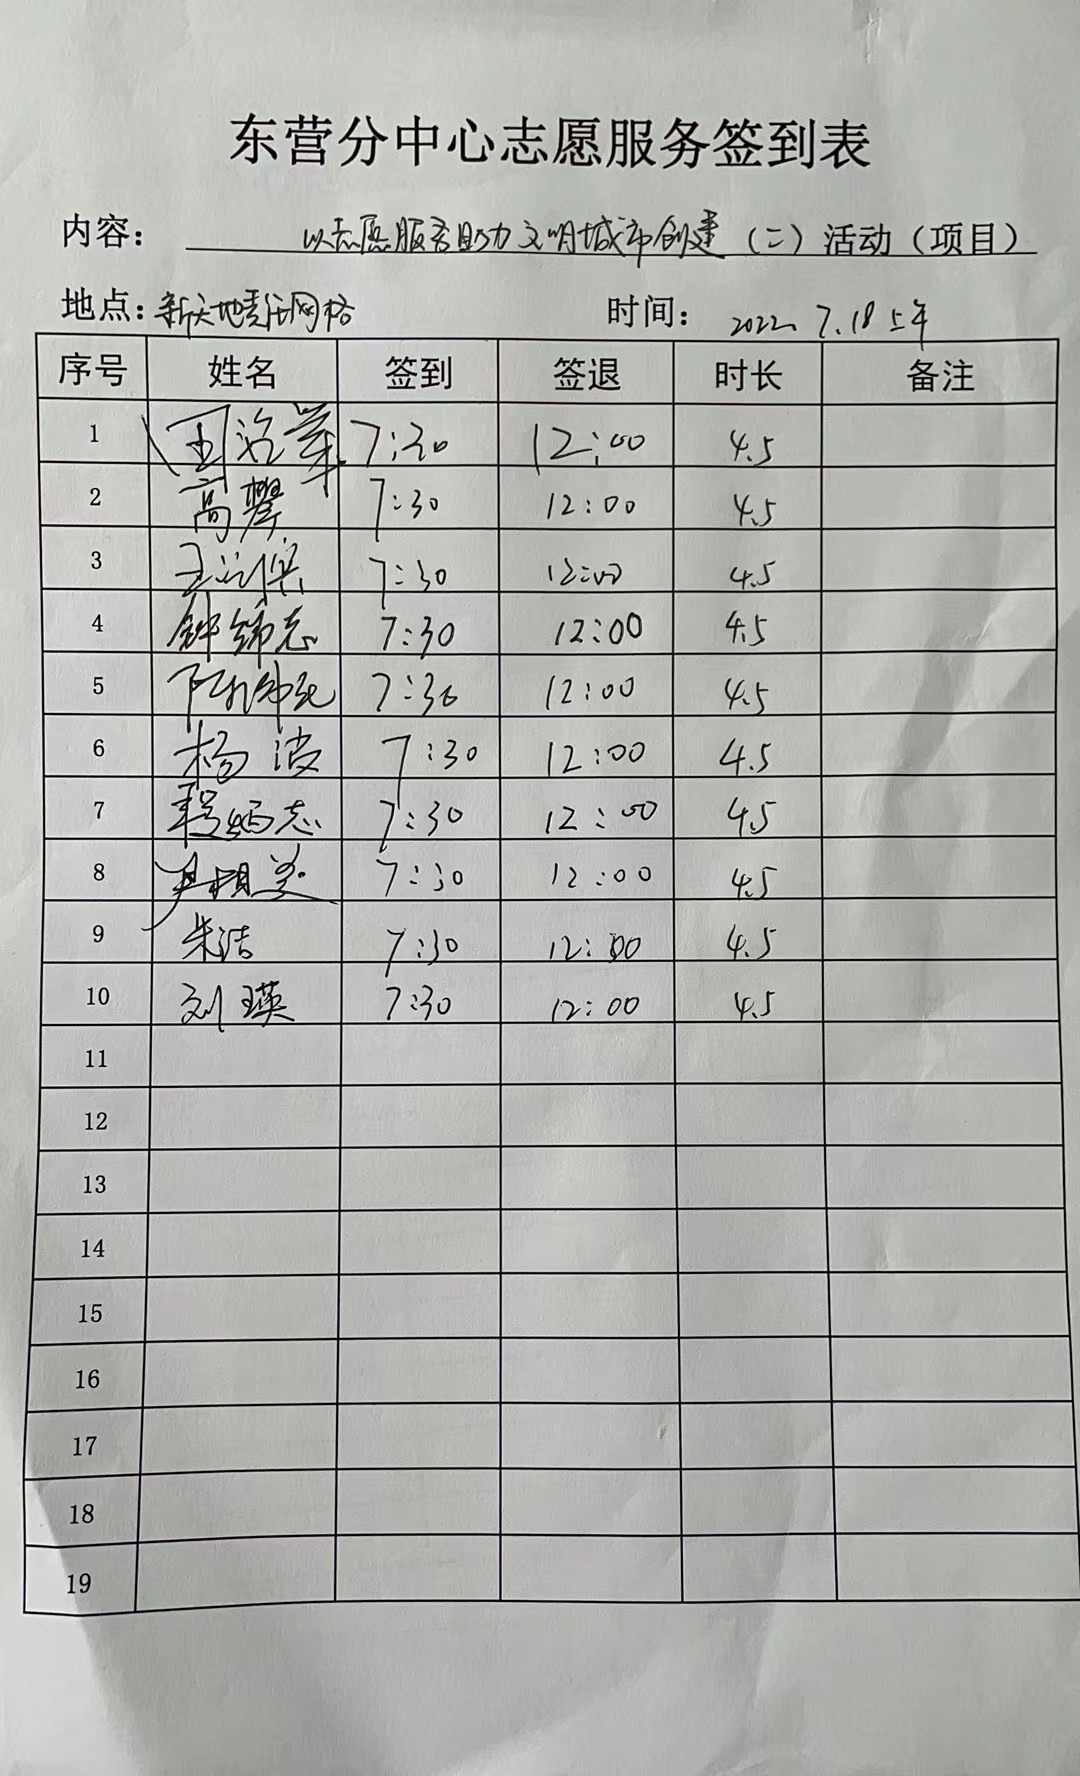 东营分中心志愿服务签到表
内容: 以志愿服务助力文明城市创建（二）活动（项目）
地点: 新天地责任网格 时间: 2022 7.18 上午
序号 姓名 签到 签退 时长 备注
1 7:30 12:00 4.5
2 高攀 7:30 12:00 4.5
3 7:30 12:00 4.5
4 钟锦志 7:30 12:00 4.5
5 7:30 12:00 4.5
6 杨波 7:30 12:00 4.5
7 7:30 12:00 4.5
8 7:30 12:00 4.5
9 朱洁 7:30 12:00 4.5
10 刘瑛 7:30 12:00 4.5
11
12
13
14
15
16
17
18
19